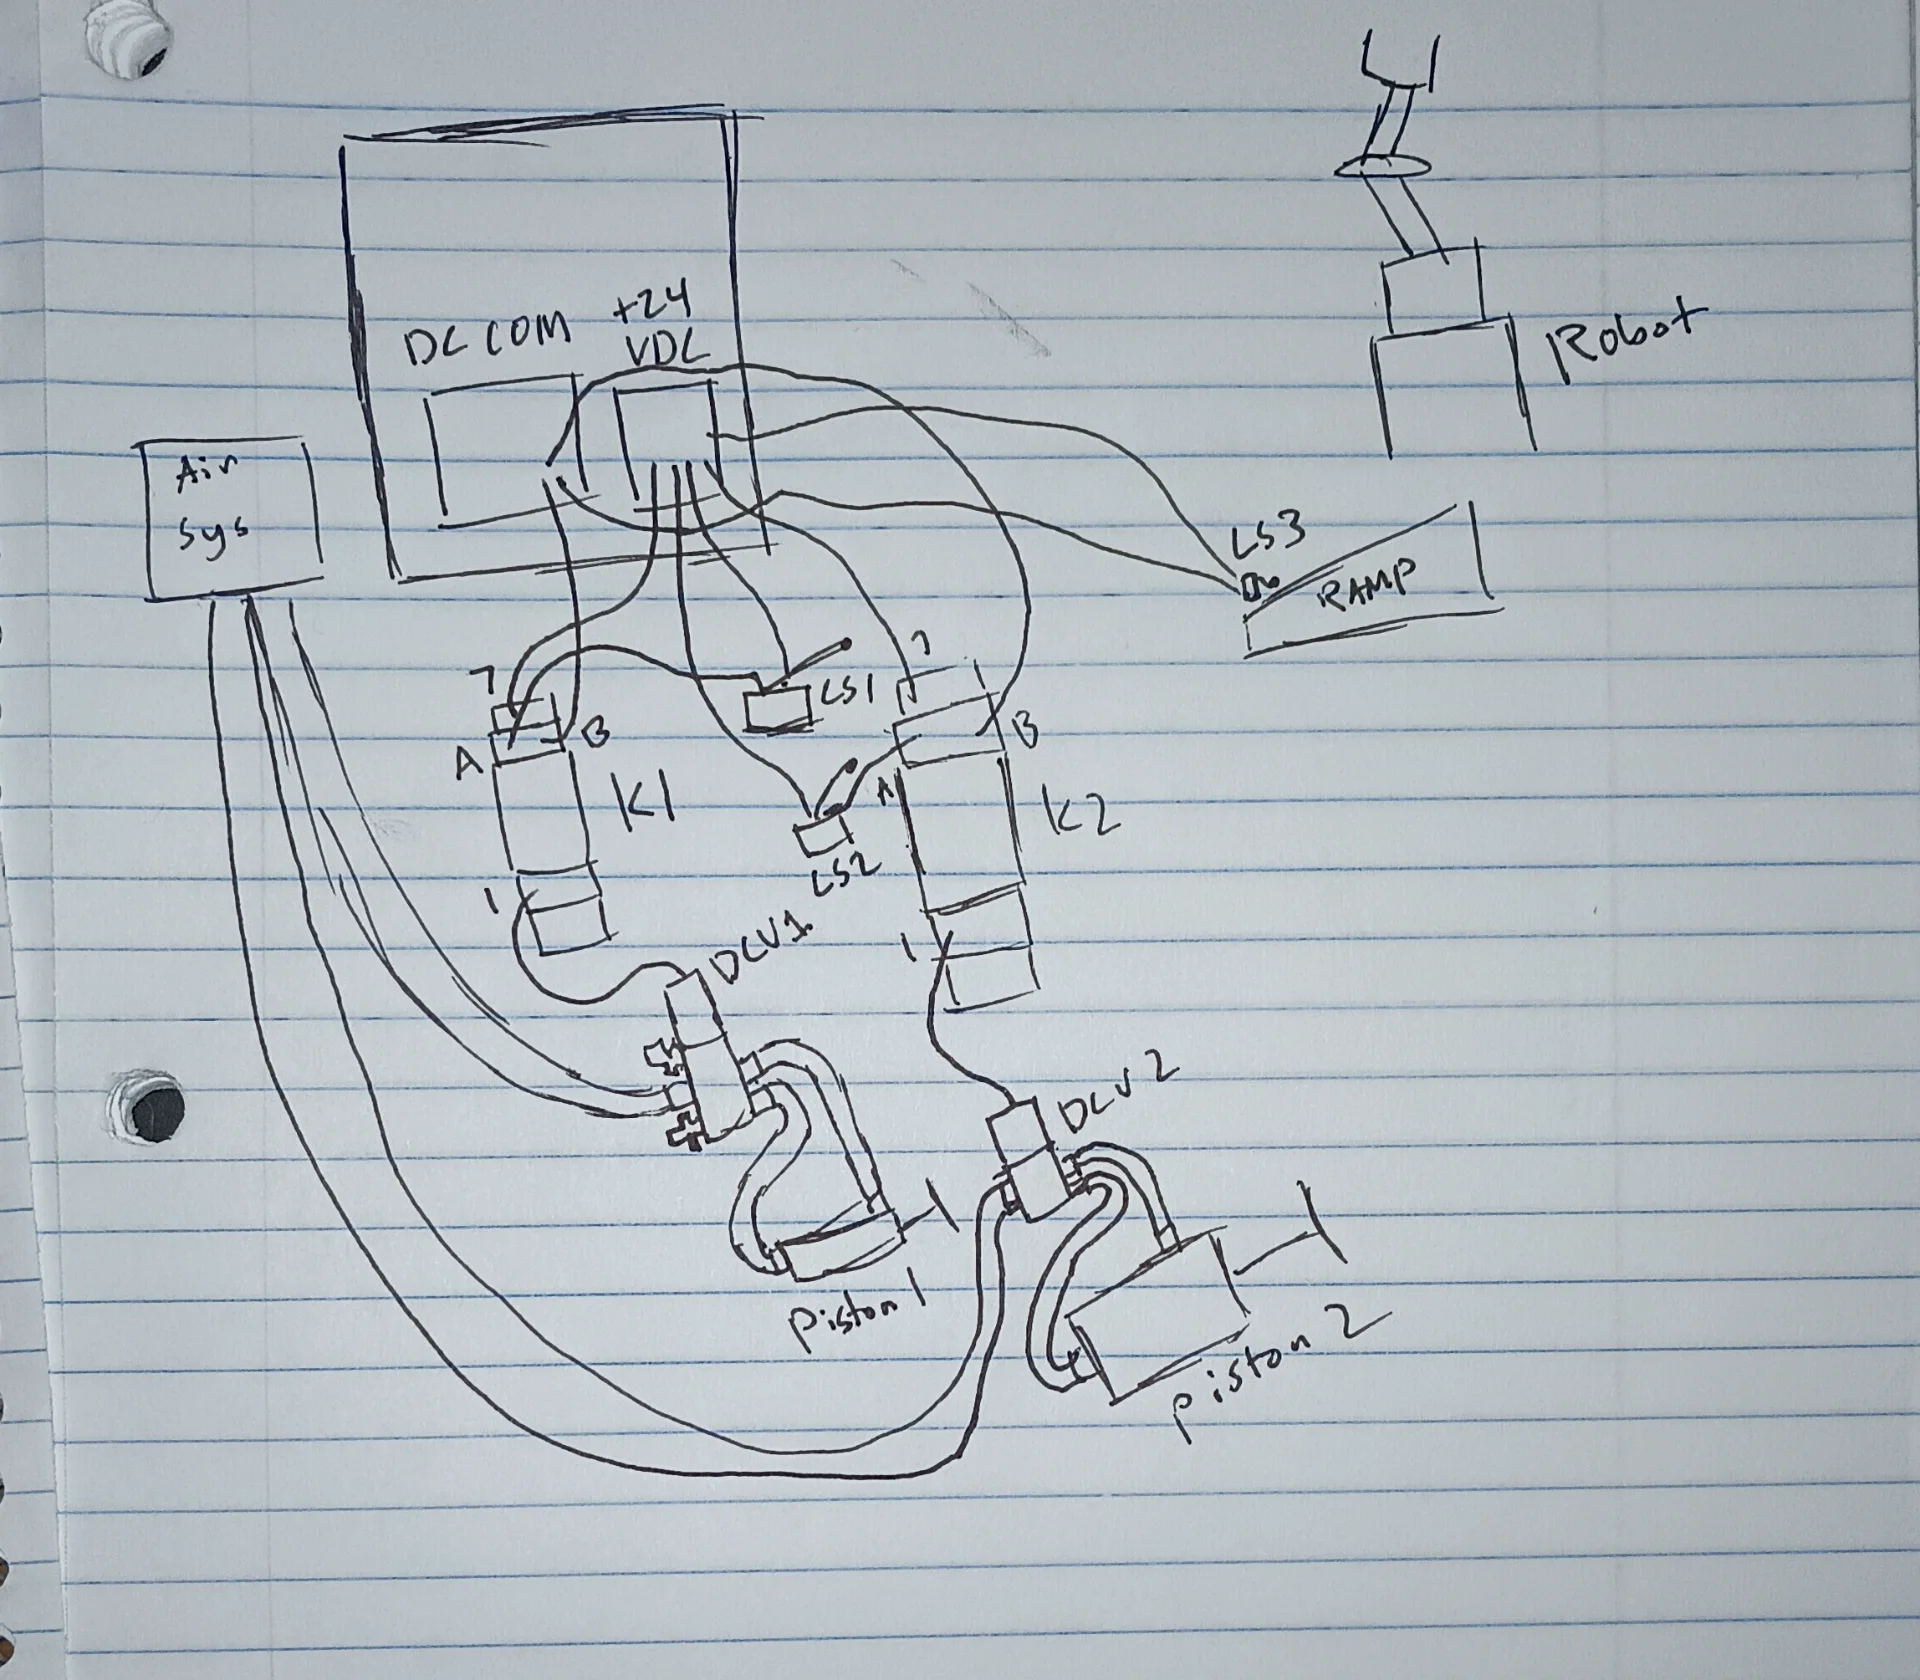 DC COM
+24
VDC
Air
Sys
Robot
LS3
RAMP
7
A
B
K1
1
LS1
LS2
7
A
B
K2
1
DCV1
DCV2
Piston 1
Piston 2